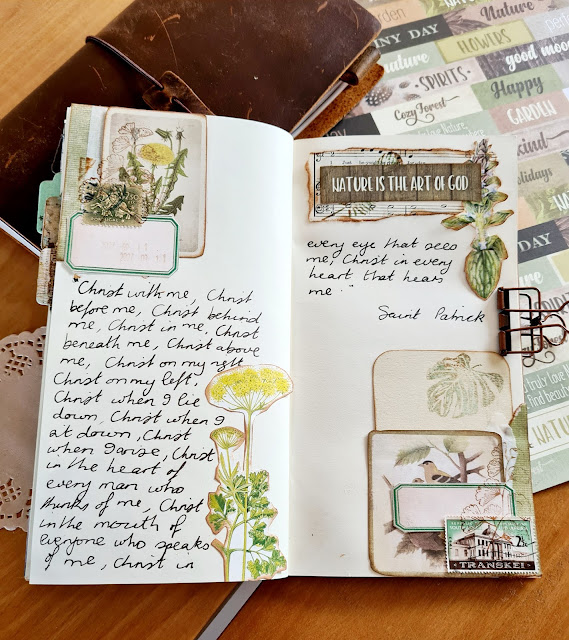 "Christ with me, Christ
before me, Christ behind
me, Christ in me, Christ
beneath me, Christ above
me, Christ on my right
Christ on my left,
Christ when I lie
down, Christ when I
sit down, Christ
when I arise, Christ
in the heart of
every man who
thinks of me, Christ
in the mouth of
everyone who speaks
of me, Christ in
NATURE IS THE ART OF GOD
every eye that sees
me, Christ in every
heart that hears
me."
Saint Patrick
TRANSKEI
Nature
NY DAY
FLOWERS
good moo
nature
SPIRITS
Happy
Cozy Forest
GARDEN
kind
holidays
DAY
truly love
Find beaut
NATU